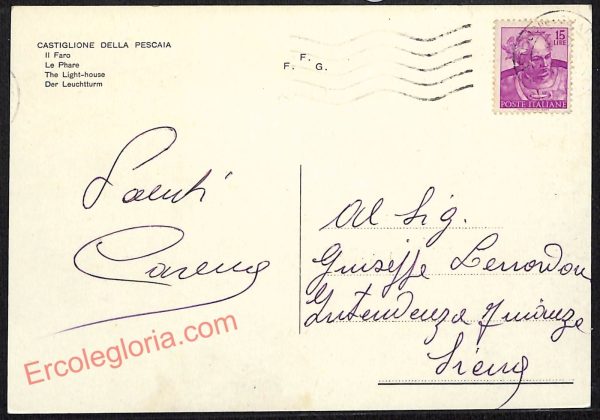 CASTIGLIONE DELLA PESCAIA
Il Faro
Le Phare
The Light-house
Der Leuchtturm
F.
F. G.
15
LIRE
POSTE ITALIANE
Saluti
Al Sig.
Giuseppe
Intendenza Finanza
Siena
Ercolegloria.com